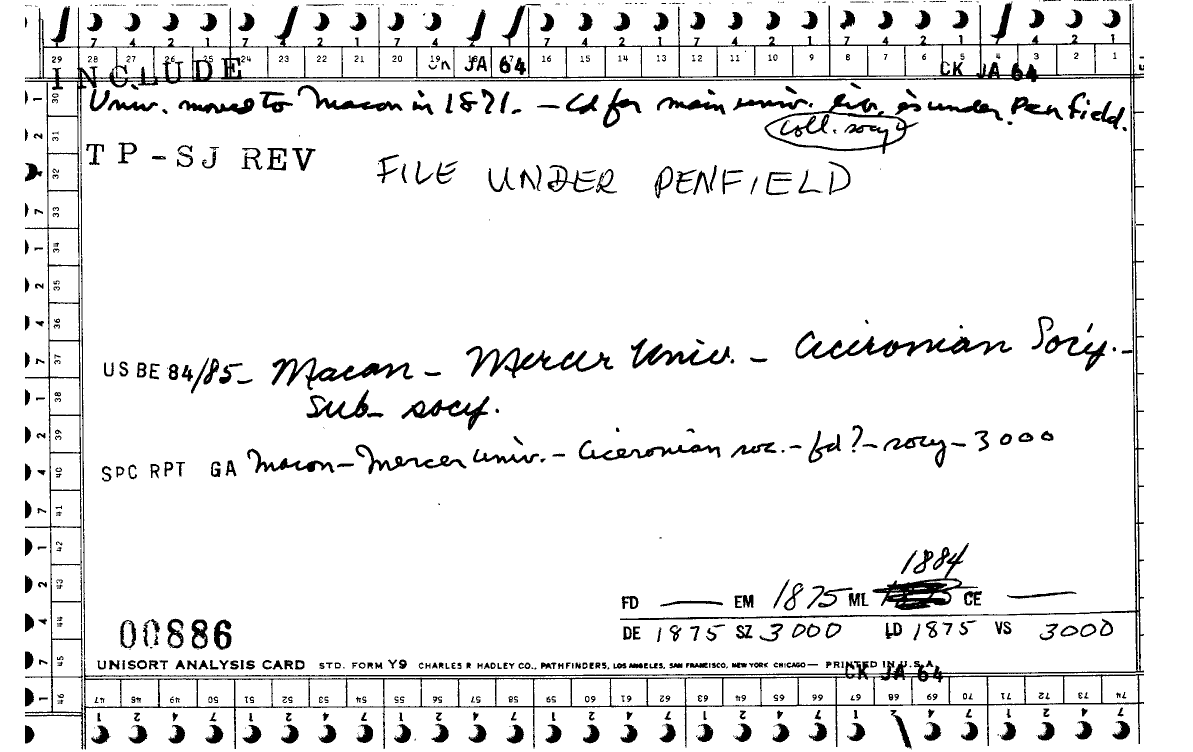 7 4 2 1 7 4 2 1 7 4 2 1 7 4 2 1 7 4 2 1 7 4 2 1 7 4 2 1
29 28 27 26 25 24 23 22 21 20 19 16 15 14 13 12 11 10 9 8 7 6 5 4 3 2 1
JA 64 CK JA 64
INCLUDE
Univ. moved to Macon in 1871. – Cd for main univ. lib. is under Penfield.
coll. socy
TP-SJ REV
FILE UNDER PENFIELD
US BE 84/85 – Macon – Mercer Univ. – Ciceronian Soc'y. –
Sub – socy.
SPC RPT GA Macon – Mercer Univ. – Ciceronian soc. – fd? – socy – 3000
1884
FD — EM 1875 ML CE —
DE 1875 SZ 3000 LD 1875 VS 3000
00886
UNISORT ANALYSIS CARD STD. FORM Y9 CHARLES R HADLEY CO., PATHFINDERS, LOS ANGELES, SAN FRANCISCO, NEW YORK CHICAGO — PRINTED IN U.S.A.
CK JA 64
47 48 49 50 51 52 53 54 55 56 57 58 59 60 61 62 63 64 65 66 67 68 69 70 71 72 73 74